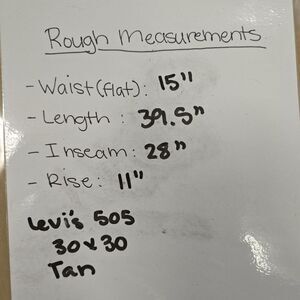 Rough Measurements
- Waist(flat): 15"
- Length : 39.5"
- Inseam: 28"
- Rise: 11"
Levi's 505
30x30
Tan